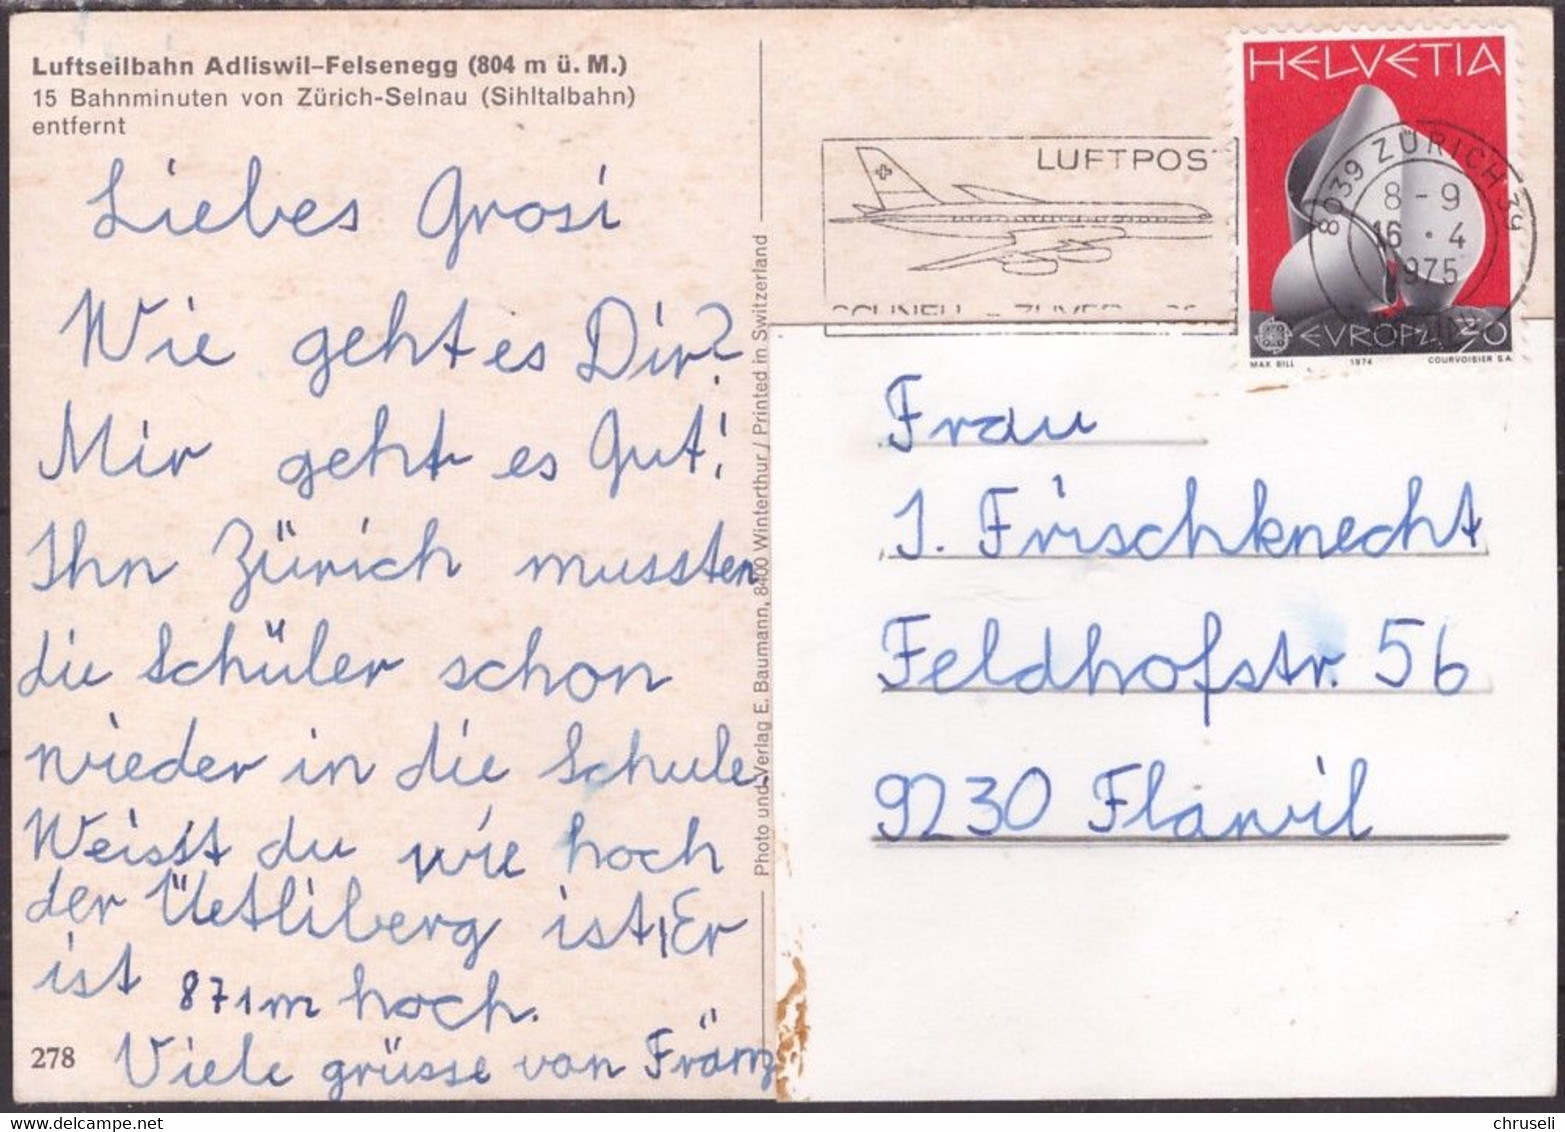 Luftseilbahn Adliswil–Felsenegg (804 m ü. M.)
15 Bahnminuten von Zürich-Selnau (Sihltalbahn)
entfernt
Liebes Grosi
Wie geht es Dir?
Mir geht es Gut!
Ihn Zürich mussten
die Schüler schon
wieder in die Schule.
Weisst du wie hoch
der Üetliberg ist, Er
ist 871m hoch.
Viele grüsse von Fränz
278
Photo und Verlag E. Baumann, 8400 Winterthur / Printed in Switzerland
LUFTPOS
HELVETIA
8039 ZÜRICH 39
8 - 9
16 . 4
1975
EVROPA 30
MAX BILL 1974 COURVOISIER S.A.
Frau
J. Frischknecht
Feldhofstr. 56
9230 Flawil
chruseli